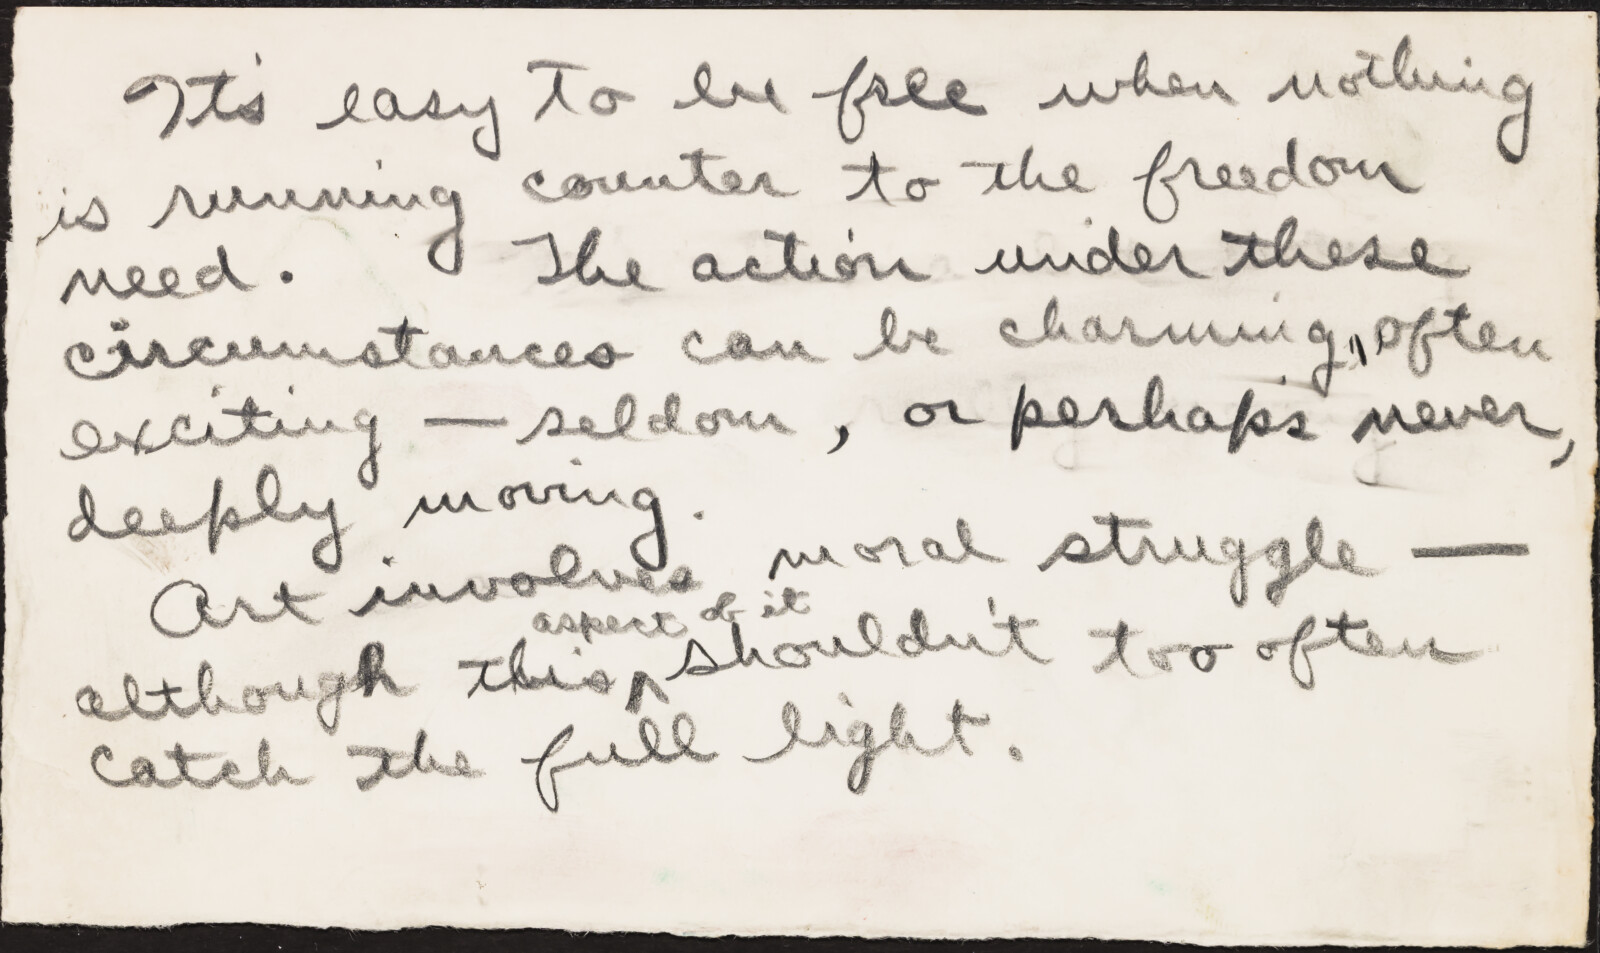 It's easy to be free when nothing
is running counter to the freedom
need. The action under these
circumstances can be charming, often
exciting — seldom, or perhaps never,
deeply moving.
Art involves moral struggle —
although this aspect of it shouldn't too often
catch the full light.